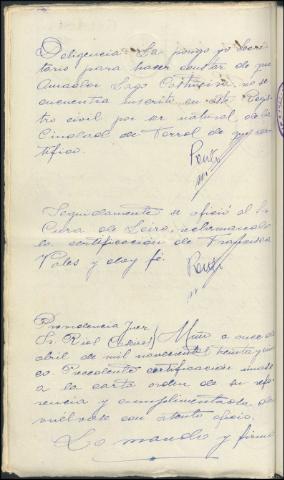 Diligencia - La pongo yo Secre-
tario para hacer constar de que
Amador Lago no se
encuentra inscrito en este Regis-
tro civil por ser natural de la
Ciudad de Ferrol de que cer-
tifico.
Seguidamente se ofició al Sr
Cura de Leiro, reclamando
la certificación de Francisca
y doy fé.
Providencia Juez
Sr. Riol
abril de mil novecientos treinta y cin-
co Precedente certificación unase
a la carta orden de su refe-
rencia y cumplimentada de-
vuelvase con atento oficio.
Lo mandó y firma